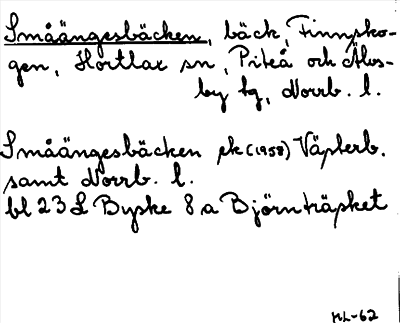 Småängesbäcken, bäck, Finnsko-
gen, Hortlax sn, Piteå och Älvs-
by tg, Norrb. l.
Småängesbäcken ek (1958) Västerb.
samt Norrb. l.
bl 23 L Byske 8 a Björnträsket
ML-62